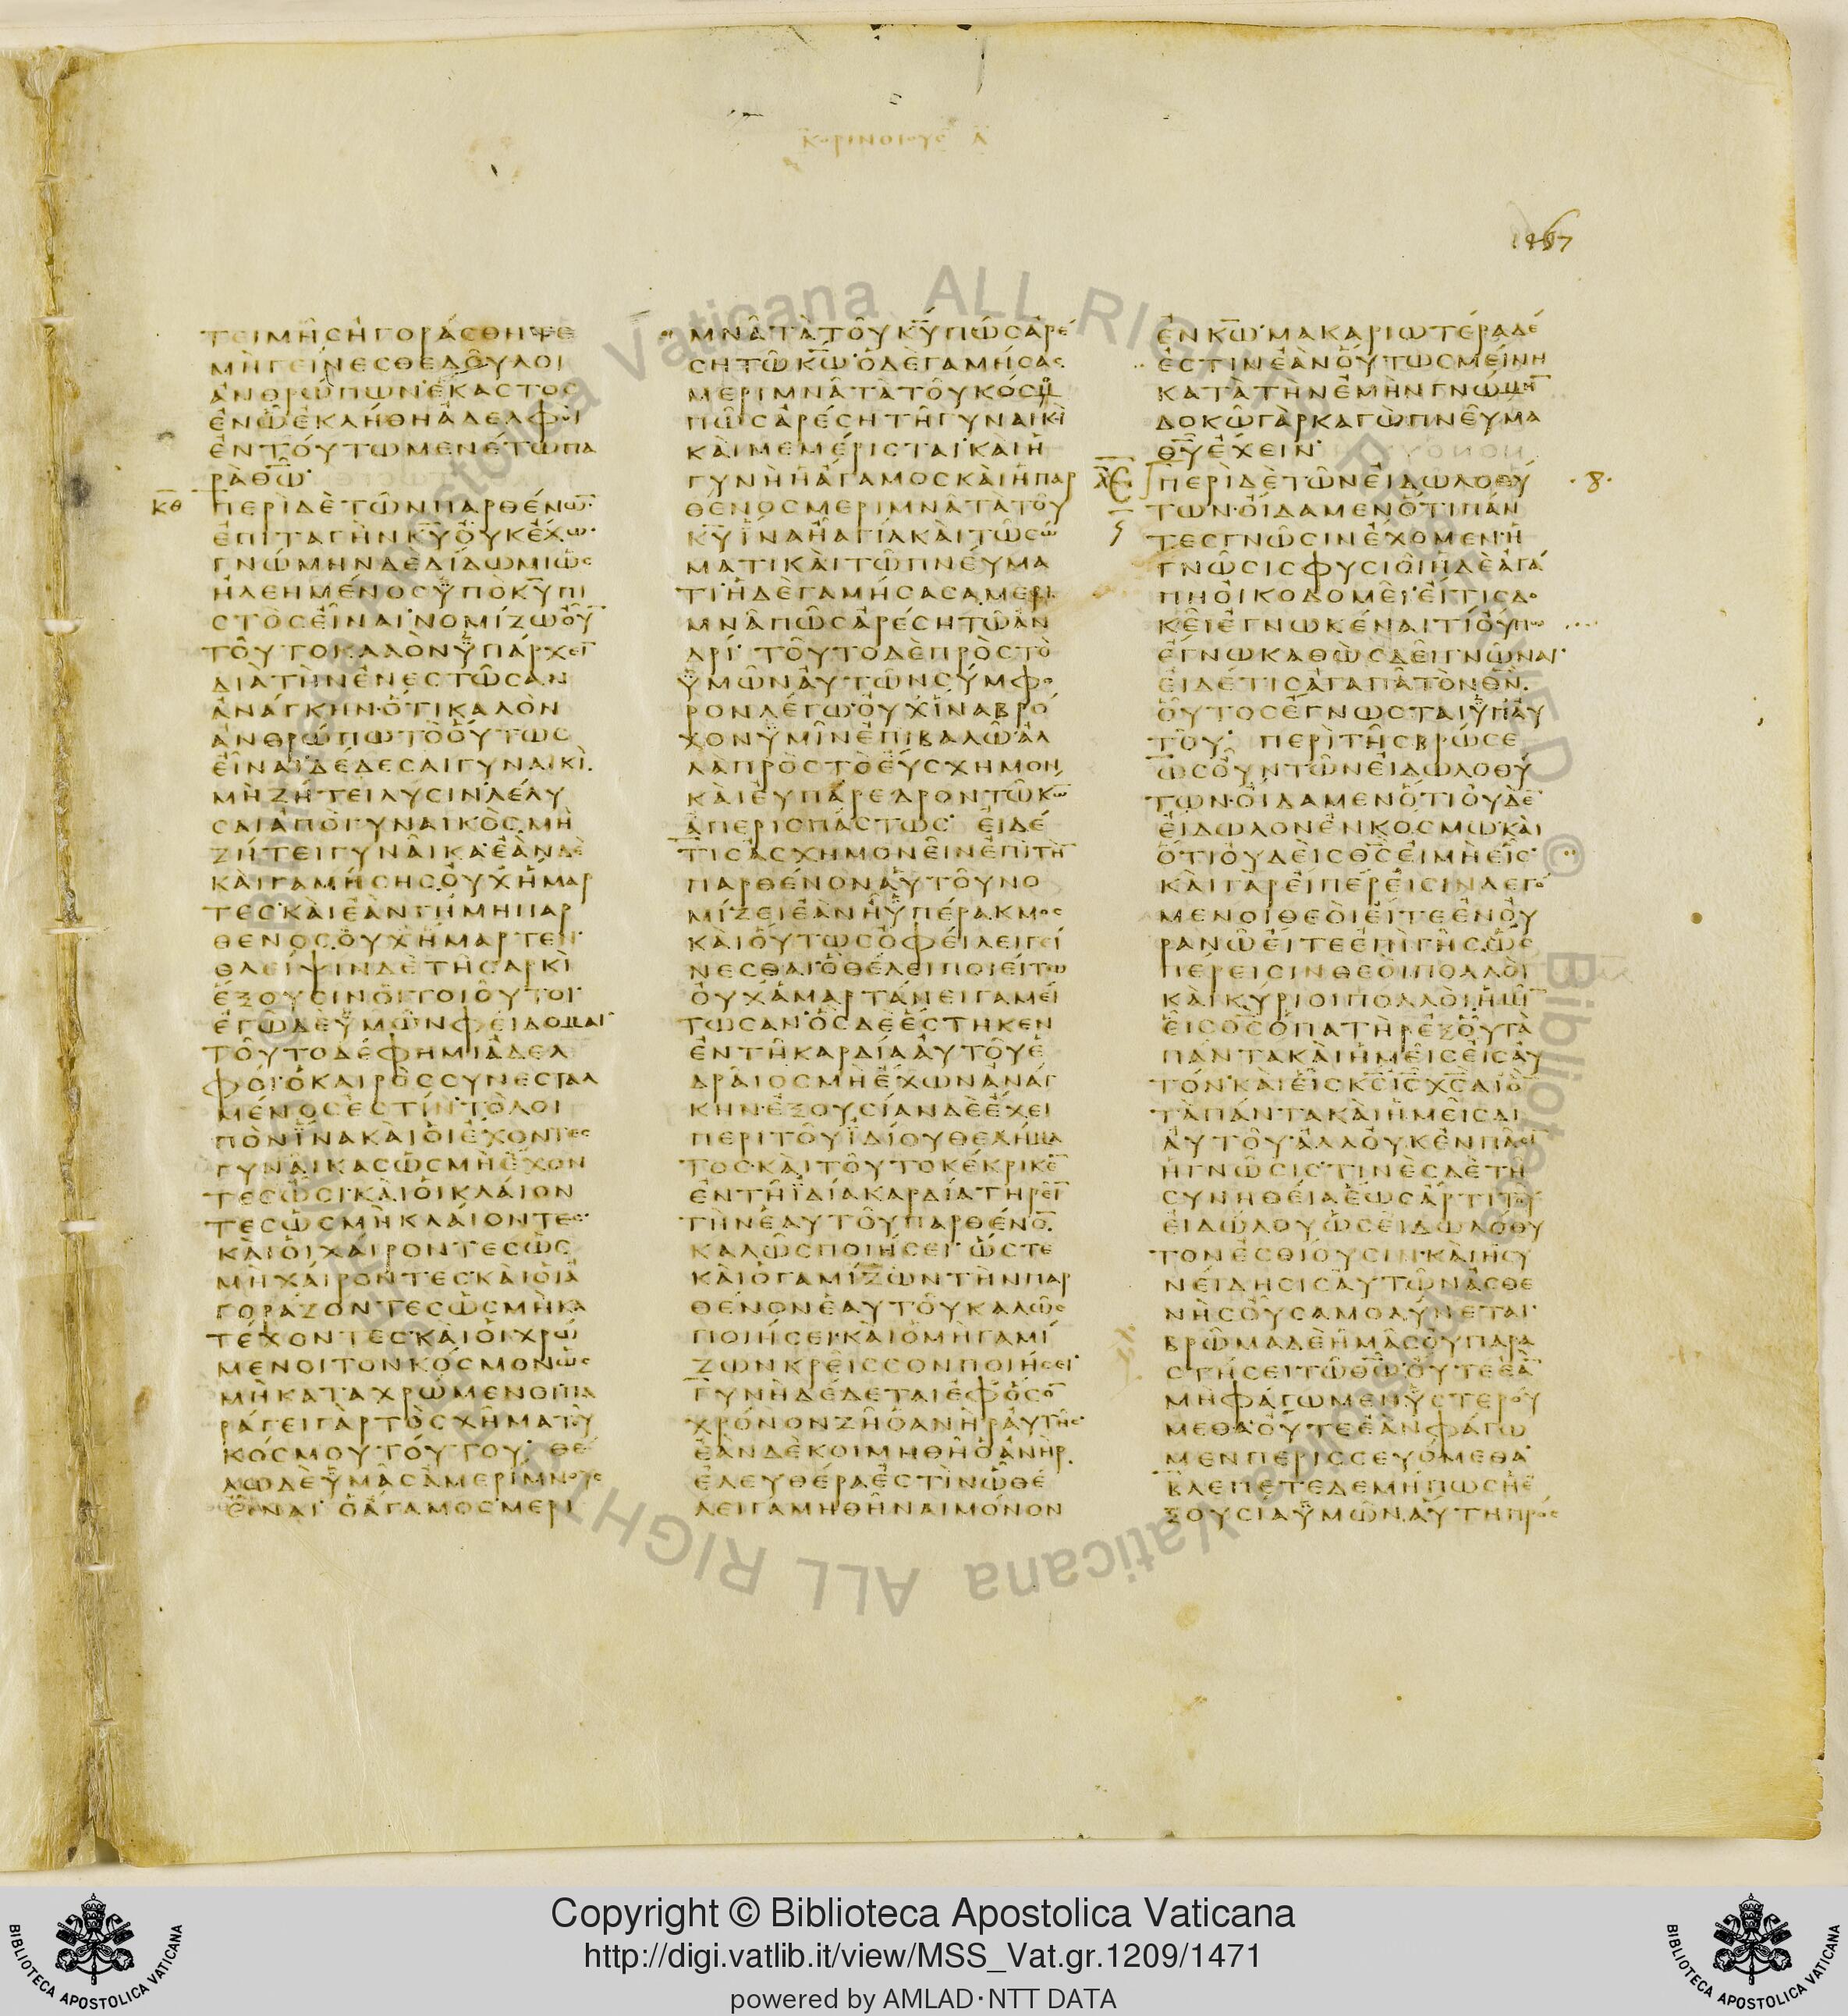 ΚΟΡΙΝΘΙΟΥΣ Α
1467
ΤΕΙΜΗΣΗΓΟΡΑΣΘΗΤΕ
ΜΗΓΕΙΝΕΣΘΕΔΟΥΛΟΙ
ΑΝΘΡΩΠΩΝΕΚΑΣΤΟΣ
ΕΝΩΕΚΛΗΘΗΑΔΕΛΦΟΙ
ΕΝΤΟΥΤΩΜΕΝΕΤΩΠΑ
ΡΑΘΩ
ΚΘ ΠΕΡΙΔΕΤΩΝΠΑΡΘΕΝΩ̅
ΕΠΙΤΑΓΗΝΚ̅Υ̅ΟΥΚΕΧΩ
ΓΝΩΜΗΝΔΕΔΙΔΩΜΙΩΣ
ΗΛΕΗΜΕΝΟΣΥΠΟΚ̅Υ̅ΠΙ
ΣΤΟΣΕΙΝΑΙΝΟΜΙΖΩΟΥ̅
ΤΟΥΤΟΚΑΛΟΝΥΠΑΡΧΕΙ̅
ΔΙΑΤΗΝΕΝΕΣΤΩΣΑΝ
ΑΝΑΓΚΗΝΟΤΙΚΑΛΟΝ
ΑΝΘΡΩΠΩΤΟΟΥΤΩΣ
ΕΙΝΑΙΔΕΔΕΣΑΙΓΥΝΑΙΚΙ
ΜΗΖΗΤΕΙΛΥΣΙΝΛΕΛΥ
ΣΑΙΑΠΟΓΥΝΑΙΚΟΣΜΗ
ΖΗΤΕΙΓΥΝΑΙΚΑΕΑΝΔΕ
ΚΑΙΓΑΜΗΣΗΣΟΥΧΗΜΑΡ
ΤΕΣΚΑΙΕΑΝΓΗΜΗΠΑΡ
ΘΕΝΟΣΟΥΧΗΜΑΡΤΕΝ
ΘΛΕΙΨΙΝΔΕΤΗΣΑΡΚΙ
ΕΞΟΥΣΙΝΟΙΤΟΙΟΥΤΟΙ
ΕΓΩΔΕΥΜΩΝΦΕΙΔΟΜΑΙ
ΤΟΥΤΟΔΕΦΗΜΙΑΔΕΛ
ΦΟΙΟΚΑΙΡΟΣΣΥΝΕΣΤΑΛ
ΜΕΝΟΣΕΣΤΙΝΤΟΛΟΙ
ΠΟΝΙΝΑΚΑΙΟΙΕΧΟΝΤΕΣ
ΓΥΝΑΙΚΑΣΩΣΜΗΕΧΟΝ
ΤΕΣΩΣΙΚΑΙΟΙΚΛΑΙΟΝ
ΤΕΣΩΣΜΗΚΛΑΙΟΝΤΕΣ
ΚΑΙΟΙΧΑΙΡΟΝΤΕΣΩΣ
ΜΗΧΑΙΡΟΝΤΕΣΚΑΙΟΙΑ
ΓΟΡΑΖΟΝΤΕΣΩΣΜΗΚΑ
ΤΕΧΟΝΤΕΣΚΑΙΟΙΧΡΩ
ΜΕΝΟΙΤΟΝΚΟΣΜΟΝΩΣ
ΜΗΚΑΤΑΧΡΩΜΕΝΟΙΠΑ
ΡΑΓΕΙΓΑΡΤΟΣΧΗΜΑΤΟΥ
ΚΟΣΜΟΥΤΟΥΤΟΥ ΘΕ
ΛΩΔΕΥΜΑΣΑΜΕΡΙΜΝΟΥΣ
ΕΙΝΑΙ ΟΑΓΑΜΟΣΜΕΡΙ
ΜΝΑΤΑΤΟΥΚ̅Υ̅ΠΩΣΑΡΕ
ΣΗΤΩΚ̅Ω̅ΟΔΕΓΑΜΗΣΑΣ
ΜΕΡΙΜΝΑΤΑΤΟΥΚΟΣΜΟΥ
ΠΩΣΑΡΕΣΗΤΗΓΥΝΑΙΚΙ
ΚΑΙΜΕΜΕΡΙΣΤΑΙΚΑΙΗ
ΓΥΝΗΗΑΓΑΜΟΣΚΑΙΗΠΑΡ
ΘΕΝΟΣΜΕΡΙΜΝΑΤΑΤΟΥ
Κ̅Υ̅ΙΝΑΗΑΓΙΑΚΑΙΤΩΣΩ
ΜΑΤΙΚΑΙΤΩΠΝΕΥΜΑ
ΤΙΗΔΕΓΑΜΗΣΑΣΑΜΕΡΙ
ΜΝΑΠΩΣΑΡΕΣΗΤΩΑΝ
ΔΡΙ ΤΟΥΤΟΔΕΠΡΟΣΤΟ
ΥΜΩΝΑΥΤΩΝΣΥΜΦΟ
ΡΟΝΛΕΓΩΟΥΧΙΝΑΒΡΟ
ΧΟΝΥΜΙΝΕΠΙΒΑΛΩΑΛ
ΛΑΠΡΟΣΤΟΕΥΣΧΗΜΟΝ
ΚΑΙΕΥΠΑΡΕΔΡΟΝΤΩΚ̅Ω̅
ΑΠΕΡΙΣΠΑΣΤΩΣ ΕΙΔΕ
ΤΙΣΑΣΧΗΜΟΝΕΙΝΕΠΙΤΗ̅
ΠΑΡΘΕΝΟΝΑΥΤΟΥΝΟ
ΜΙΖΕΙΕΑΝΗΥΠΕΡΑΚΜΟΣ
ΚΑΙΟΥΤΩΣΟΦΕΙΛΕΙΓΕΙ
ΝΕΣΘΑΙΟΘΕΛΕΙΠΟΙΕΙΤΩ
ΟΥΧΑΜΑΡΤΑΝΕΙΓΑΜΕΙ
ΤΩΣΑΝΟΣΔΕΕΣΤΗΚΕΝ
ΕΝΤΗΚΑΡΔΙΑΑΥΤΟΥΕ
ΔΡΑΙΟΣΜΗΕΧΩΝΑΝΑΓ
ΚΗΝΕΞΟΥΣΙΑΝΔΕΕΧΕΙ
ΠΕΡΙΤΟΥΙΔΙΟΥΘΕΛΗΜΑ
ΤΟΣΚΑΙΤΟΥΤΟΚΕΚΡΙΚΕ̅
ΕΝΤΗΙΔΙΑΚΑΡΔΙΑΤΗΡΕΙ̅
ΤΗΝΕΑΥΤΟΥΠΑΡΘΕΝΟ̅
ΚΑΛΩΣΠΟΙΗΣΕΙ ΩΣΤΕ
ΚΑΙΟΓΑΜΙΖΩΝΤΗΝΠΑΡ
ΘΕΝΟΝΕΑΥΤΟΥΚΑΛΩΣ
ΠΟΙΗΣΕΙΚΑΙΟΜΗΓΑΜΙ
ΖΩΝΚΡΕΙΣΣΟΝΠΟΙΗΣΕΙ
ΓΥΝΗΔΕΔΕΤΑΙΕΦΟΣΟ̅
ΧΡΟΝΟΝΖΗΟΑΝΗΡΑΥΤΗΣ
ΕΑΝΔΕΚΟΙΜΗΘΗΟΑΝΗΡ
ΕΛΕΥΘΕΡΑΕΣΤΙΝΩΘΕ
ΛΕΙΓΑΜΗΘΗΝΑΙΜΟΝΟΝ
ΕΝΚ̅Ω̅ΜΑΚΑΡΙΩΤΕΡΑΔΕ
ΕΣΤΙΝΕΑΝΟΥΤΩΣΜΕΙΝΗ
ΚΑΤΑΤΗΝΕΜΗΝΓΝΩΜΗ̅
ΔΟΚΩΓΑΡΚΑΓΩΠΝΕΥΜΑ
Θ̅Υ̅ΕΧΕΙΝ
ΠΕΡΙΔΕΤΩΝΕΙΔΩΛΟΘΥ
ΤΩΝΟΙΔΑΜΕΝΟΤΙΠΑΝ
ΤΕΣΓΝΩΣΙΝΕΧΟΜΕΝΗ
ΓΝΩΣΙΣΦΥΣΙΟΙΗΔΕΑΓΑ
ΠΗΟΙΚΟΔΟΜΕΙΕΙΤΙΣΔΟ
ΚΕΙΕΓΝΩΚΕΝΑΙΤΙΟΥΠΩ
ΕΓΝΩΚΑΘΩΣΔΕΙΓΝΩΝΑΙ
ΕΙΔΕΤΙΣΑΓΑΠΑΤΟΝΘ̅Ν̅
ΟΥΤΟΣΕΓΝΩΣΤΑΙΥΠΑΥ
ΤΟΥ ΠΕΡΙΤΗΣΒΡΩΣΕ
ΩΣΟΥΝΤΩΝΕΙΔΩΛΟΘΥ
ΤΩΝΟΙΔΑΜΕΝΟΤΙΟΥΔΕ̅
ΕΙΔΩΛΟΝΕΝΚΟΣΜΩΚΑΙ
ΟΤΙΟΥΔΕΙΣΘ̅Σ̅ΕΙΜΗΕΙΣ
ΚΑΙΓΑΡΕΙΠΕΡΕΙΣΙΝΛΕΓΟ
ΜΕΝΟΙΘΕΟΙΕΙΤΕΕΝΟΥ
ΡΑΝΩΕΙΤΕΕΠΙΓΗΣΩΣ
ΠΕΡΕΙΣΙΝΘΕΟΙΠΟΛΛΟΙ
ΚΑΙΚΥΡΙΟΙΠΟΛΛΟΙΗΜΙ̅
ΕΙΣΘ̅Σ̅ΟΠΑΤΗΡΕΞΟΥΤΑ
ΠΑΝΤΑΚΑΙΗΜΕΙΣΕΙΣΑΥ
ΤΟΝΚΑΙΕΙΣΚ̅Σ̅Ι̅Σ̅Χ̅Σ̅ΔΙΟ̅
ΤΑΠΑΝΤΑΚΑΙΗΜΕΙΣΔΙ
ΑΥΤΟΥΑΛΛΟΥΚΕΝΠΑΣΙ
ΗΓΝΩΣΙΣΤΙΝΕΣΔΕΤΗ
ΣΥΝΗΘΕΙΑΕΩΣΑΡΤΙΤΟΥ
ΕΙΔΩΛΟΥΩΣΕΙΔΩΛΟΘΥ
ΤΟΝΕΣΘΙΟΥΣΙΝΚΑΙΗΣΥ
ΝΕΙΔΗΣΙΣΑΥΤΩΝΑΣΘΕ
ΝΗΣΟΥΣΑΜΟΛΥΝΕΤΑΙ
ΒΡΩΜΑΔΕΗΜΑΣΟΥΠΑΡΑ
ΣΤΗΣΕΙΤΩΘ̅Ω̅ΟΥΤΕΕΑ̅
ΜΗΦΑΓΩΜΕΝΥΣΤΕΡΟΥ
ΜΕΘΑΟΥΤΕΕΑΝΦΑΓΩ
ΜΕΝΠΕΡΙΣΣΕΥΟΜΕΘΑ
ΒΛΕΠΕΤΕΔΕΜΗΠΩΣΗΕ
ΞΟΥΣΙΑΥΜΩΝΑΥΤΗΠΡΟΣ
Copyright © Biblioteca Apostolica Vaticana
http://digi.vatlib.it/view/MSS_Vat.gr.1209/1471
powered by AMLAD·NTT DATA
BIBLIOTECA APOSTOLICA VATICANA
BIBLIOTECA APOSTOLICA VATICANA